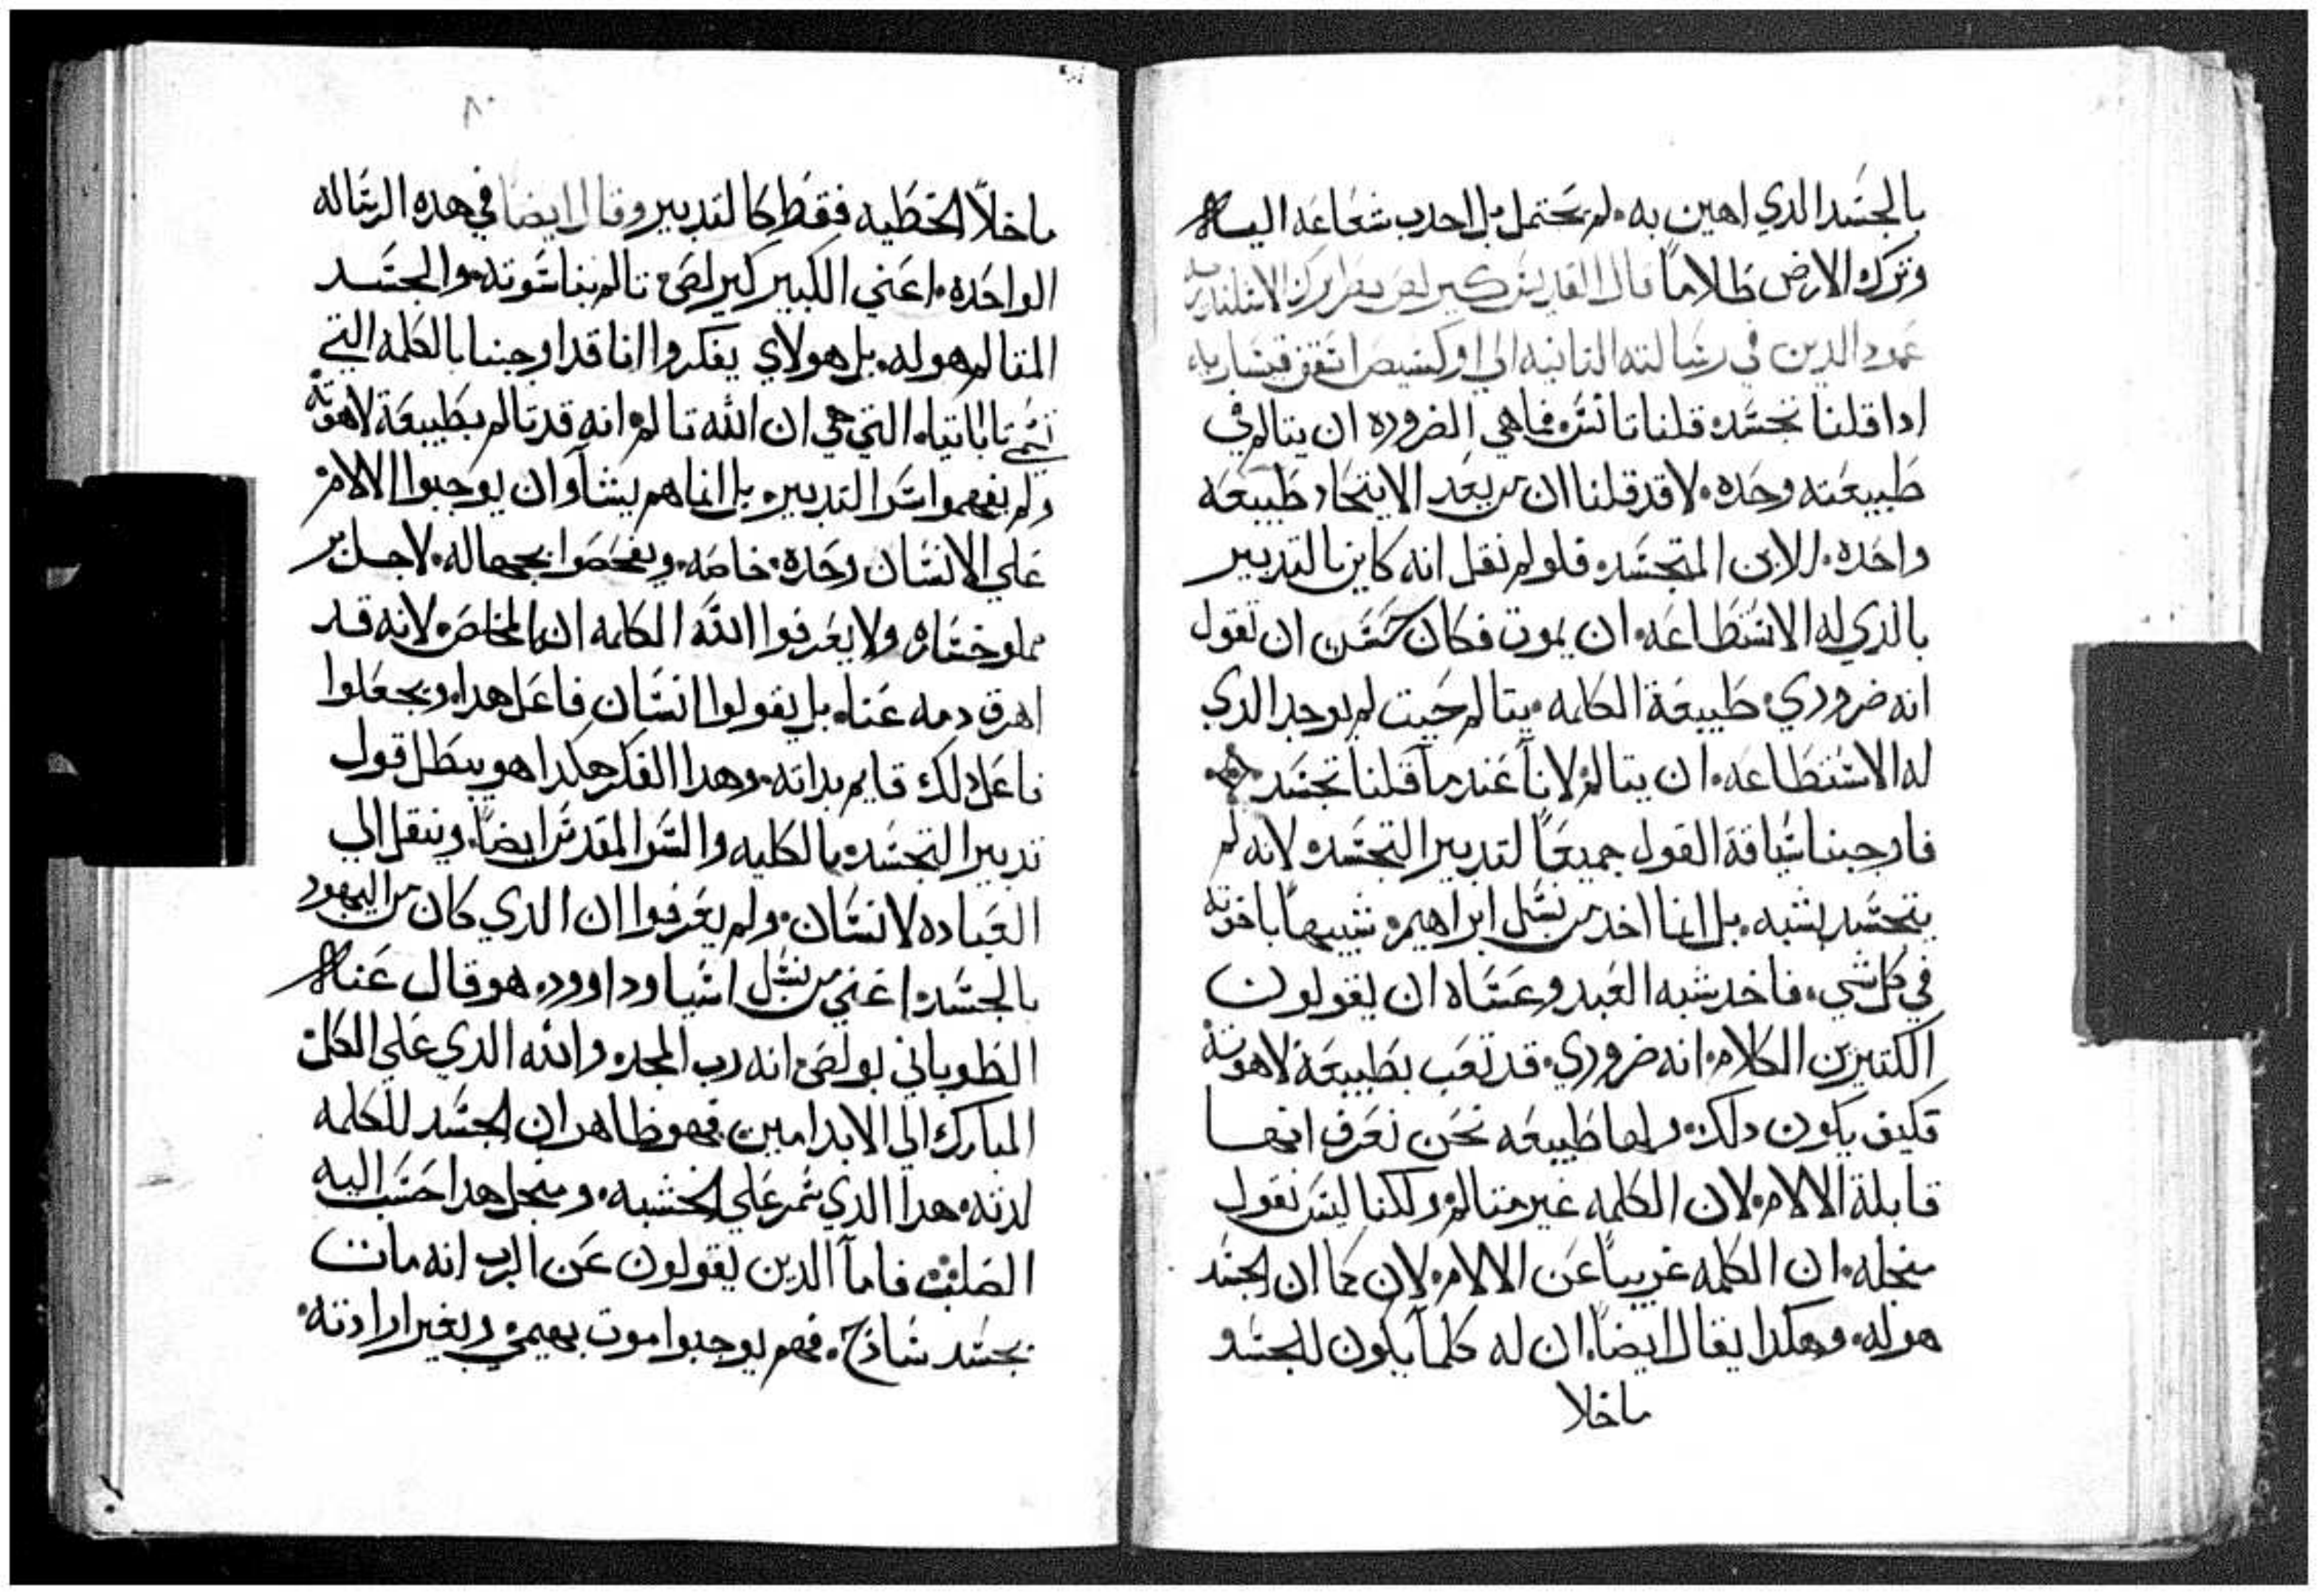 بالجسد الدي اهين به. لم تحتمل بل احدب شعاعه اليها
وترك الارض ظلاماً قال القديس كيرلص بطريرك الاسكندريه
عمود الدين في رسالته التانيه الي اوكنسيص اسقف قيساريه
ادا قلنا تجسد. قلنا تانس. فما هي الضروره ان يتالم في
طبيعته وحده. لا قد قلنا ان من بعد الايتحاد طبيعه
واحده. للابن المتجسد. فلو لم نقل انه كاين بالتدبير
بالدي له الاستطاعه. ان يموت فكان حسن ان نقول
انه ضروري. طبيعة الكلمه. يتالم حيت لم يوجد الدي
له الاستطاعه. ان يتالم. لانا عندما قلنا تجسد.
فاوجبنا سياقة القول جميعاً لتدبير التجسد. لانه لم
يتجسد بشبه. بل انما اخد من نسل ابراهيم. شبيهاً باخوته
في كل شي. فاخد شبه العبد وعساه ان يقولون
الكتيرين الكلام. انه ضروري. قد تعب بطبيعة لاهوته
فكيف يكون دلك. ولها طبيعه نحن نعرف انها
قابلة الالام. لان الكلمه غير متالم. ولكنا ليس نقول
منجله. ان الكلمه غريباً عن الالام. لان كما ان الجسد
هوله. وهكدا يقال ايضاً. ان له كلما يكون للجسد و
ماخلا
٨٠
ماخلا الخطيه فقط كالتدبير وقال ايضاً في هده الرساله
الواحده. اعني الكبير كيرلص. تالم بناسوته. والجسد
المتالم هوله. بل هولاي يفكروا اننا قد اوجبنا بالكلمه التي
تسمي تاباتيا. التي هي ان الله تالم. انه قد تالم بطبيعة لاهوته
ولم يفهموا سر التدبير. بل انما هم يشآوا ان يوجبوا الالام.
علي الانسان وحده. خاصه. ويفحصوا بجهاله. لاجل بر
مملو خساره ولا يعرفوا الله الكلمه انه المخلص. لانه قد
اهرق دمه عنا. بل يقولوا انسان فاعل هدا. ويجعلوا
فاعل دلك قايم بداته. وهدا الفكر هكدا هو يبطل قول
تدبير التجسد. بالكليه والسر المقدس ايضاً. وينقل الي
العباده لانسان. ولم يعرفوا ان الدي كان من اليهود
بالجسد. اعني من نسل اسيا وداوود. هو قال عنه
الطوباني بولص. انه رب المجد. والله الدي علي الكل.
المبارك الي الابد امين. فهو ظاهر ان الجسد للكلمه
لدته. هدا الدي سمر علي الخشبه. ومنجل هدا حسب اليه
الصلب. فامآ الدين يقولون عن الرب انه مات
بجسد ساذج. فهم يوجبوا موت بهيمي وبغير ارادته.